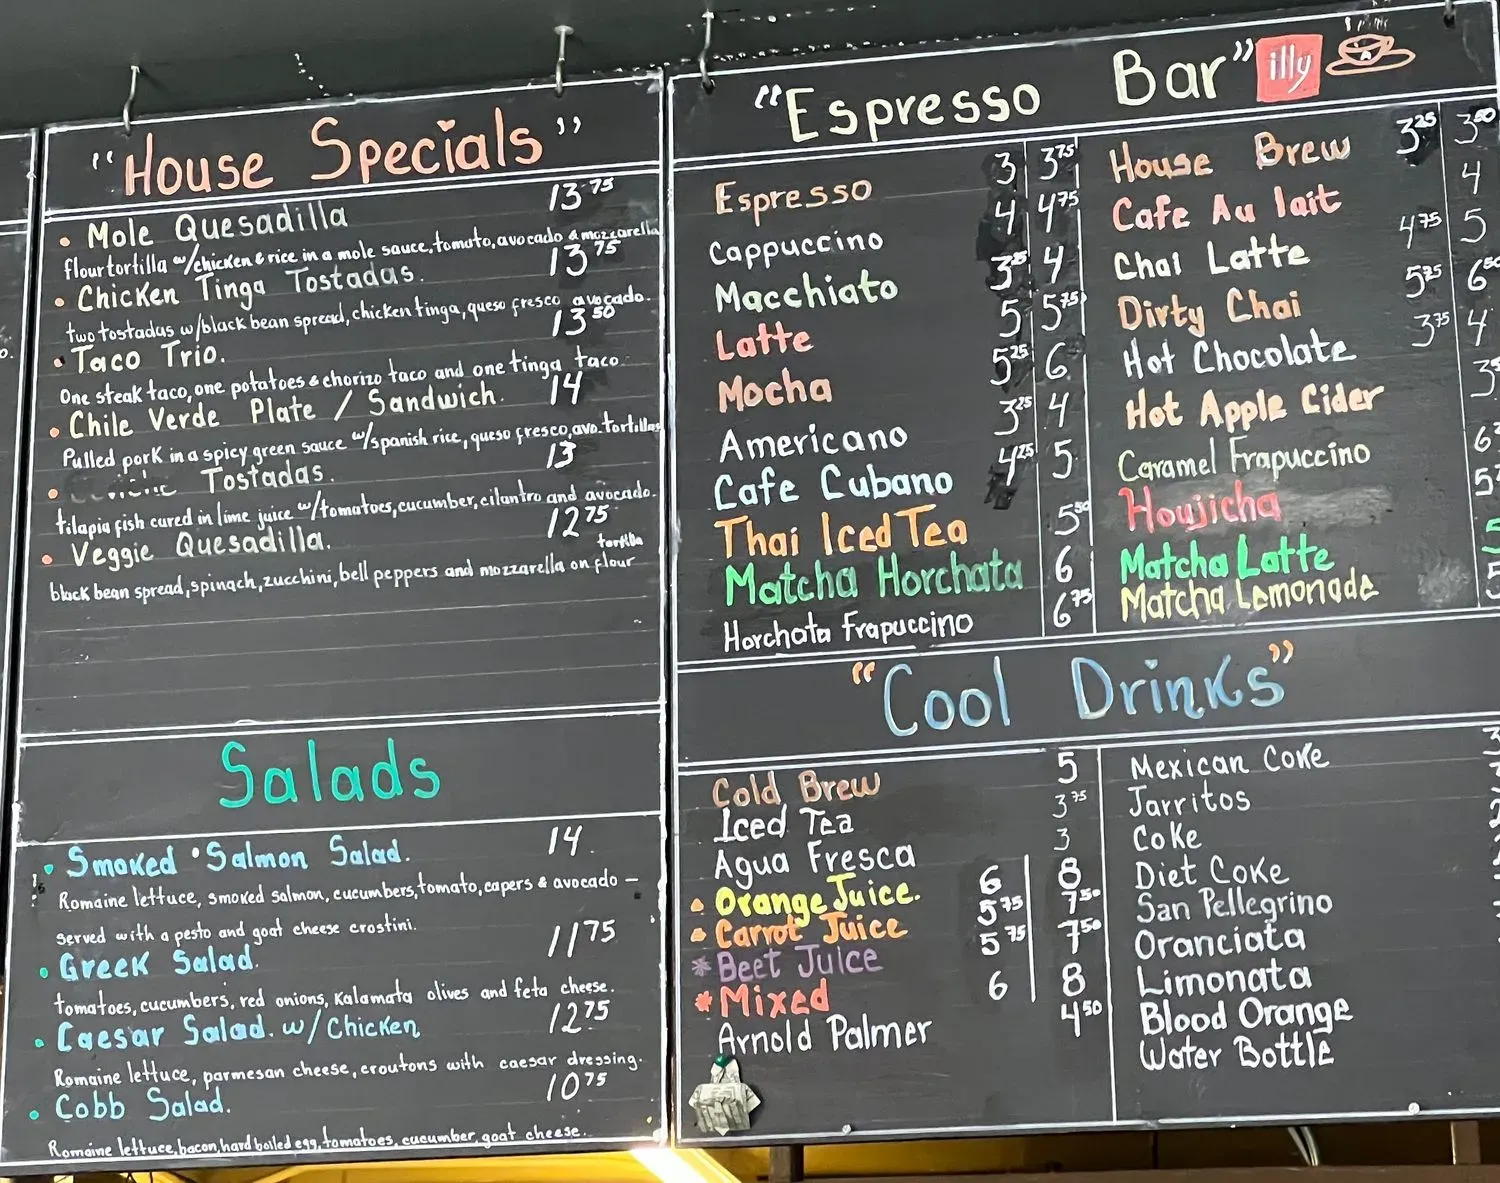 "House Specials"
• Mole Quesadilla 13 75
flour tortilla w/chicken & rice in a mole sauce, tomato, avocado & mozzarella
• Chicken Tinga Tostadas. 13 75
two tostadas w/black bean spread, chicken tinga, queso fresco avocado.
• Taco Trio. 13 50
One steak taco, one potatoes & chorizo taco and one tinga taco.
• Chile Verde Plate / Sandwich. 14
Pulled pork in a spicy green sauce w/spanish rice, queso fresco, avo. tortillas
• Tostadas. 13
tilapia fish cured in lime juice w/tomatoes, cucumber, cilantro and avocado.
• Veggie Quesadilla. 12 75
black bean spread, spinach, zucchini, bell peppers and mozzarella on flour tortilla
Salads
• Smoked Salmon Salad. 14
Romaine lettuce, smoked salmon, cucumbers, tomato, capers & avocado –
served with a pesto and goat cheese crostini.
• Greek Salad. 11 75
tomatoes, cucumbers, red onions, kalamata olives and feta cheese.
• Caesar Salad. w/Chicken 12 75
Romaine lettuce, parmesan cheese, croutons with caesar dressing.
• Cobb Salad. 10 75
Romaine lettuce, bacon, hard boiled egg, tomatoes, cucumber, goat cheese.
"Espresso Bar" illy
Espresso 3 3 75
Cappuccino 4 4 75
Macchiato 3 25 4
Latte 5 5 75
Mocha 5 25 6
Americano 3 25 4
Cafe Cubano 4 25 5
Thai Iced Tea 5 50
Matcha Horchata 6
Horchata Frapuccino 6 75
House Brew 3 25 3 50
Cafe Au lait 4
Chai Latte 4 75 5
Dirty Chai 5 75 6 50
Hot Chocolate 3 75 4
Hot Apple Cider
Caramel Frapuccino
Houjicha
Matcha Latte
Matcha Lemonade
"Cool Drinks"
Cold Brew 5
Iced Tea 3 75
Agua Fresca 3
Orange Juice. 6 8
Carrot Juice 5 75 7 50
Beet Juice 5 75 7 50
Mixed 6 8
Arnold Palmer 4 50
Mexican Coke
Jarritos
Coke
Diet Coke
San Pellegrino
Oranciata
Limonata
Blood Orange
Water Bottle